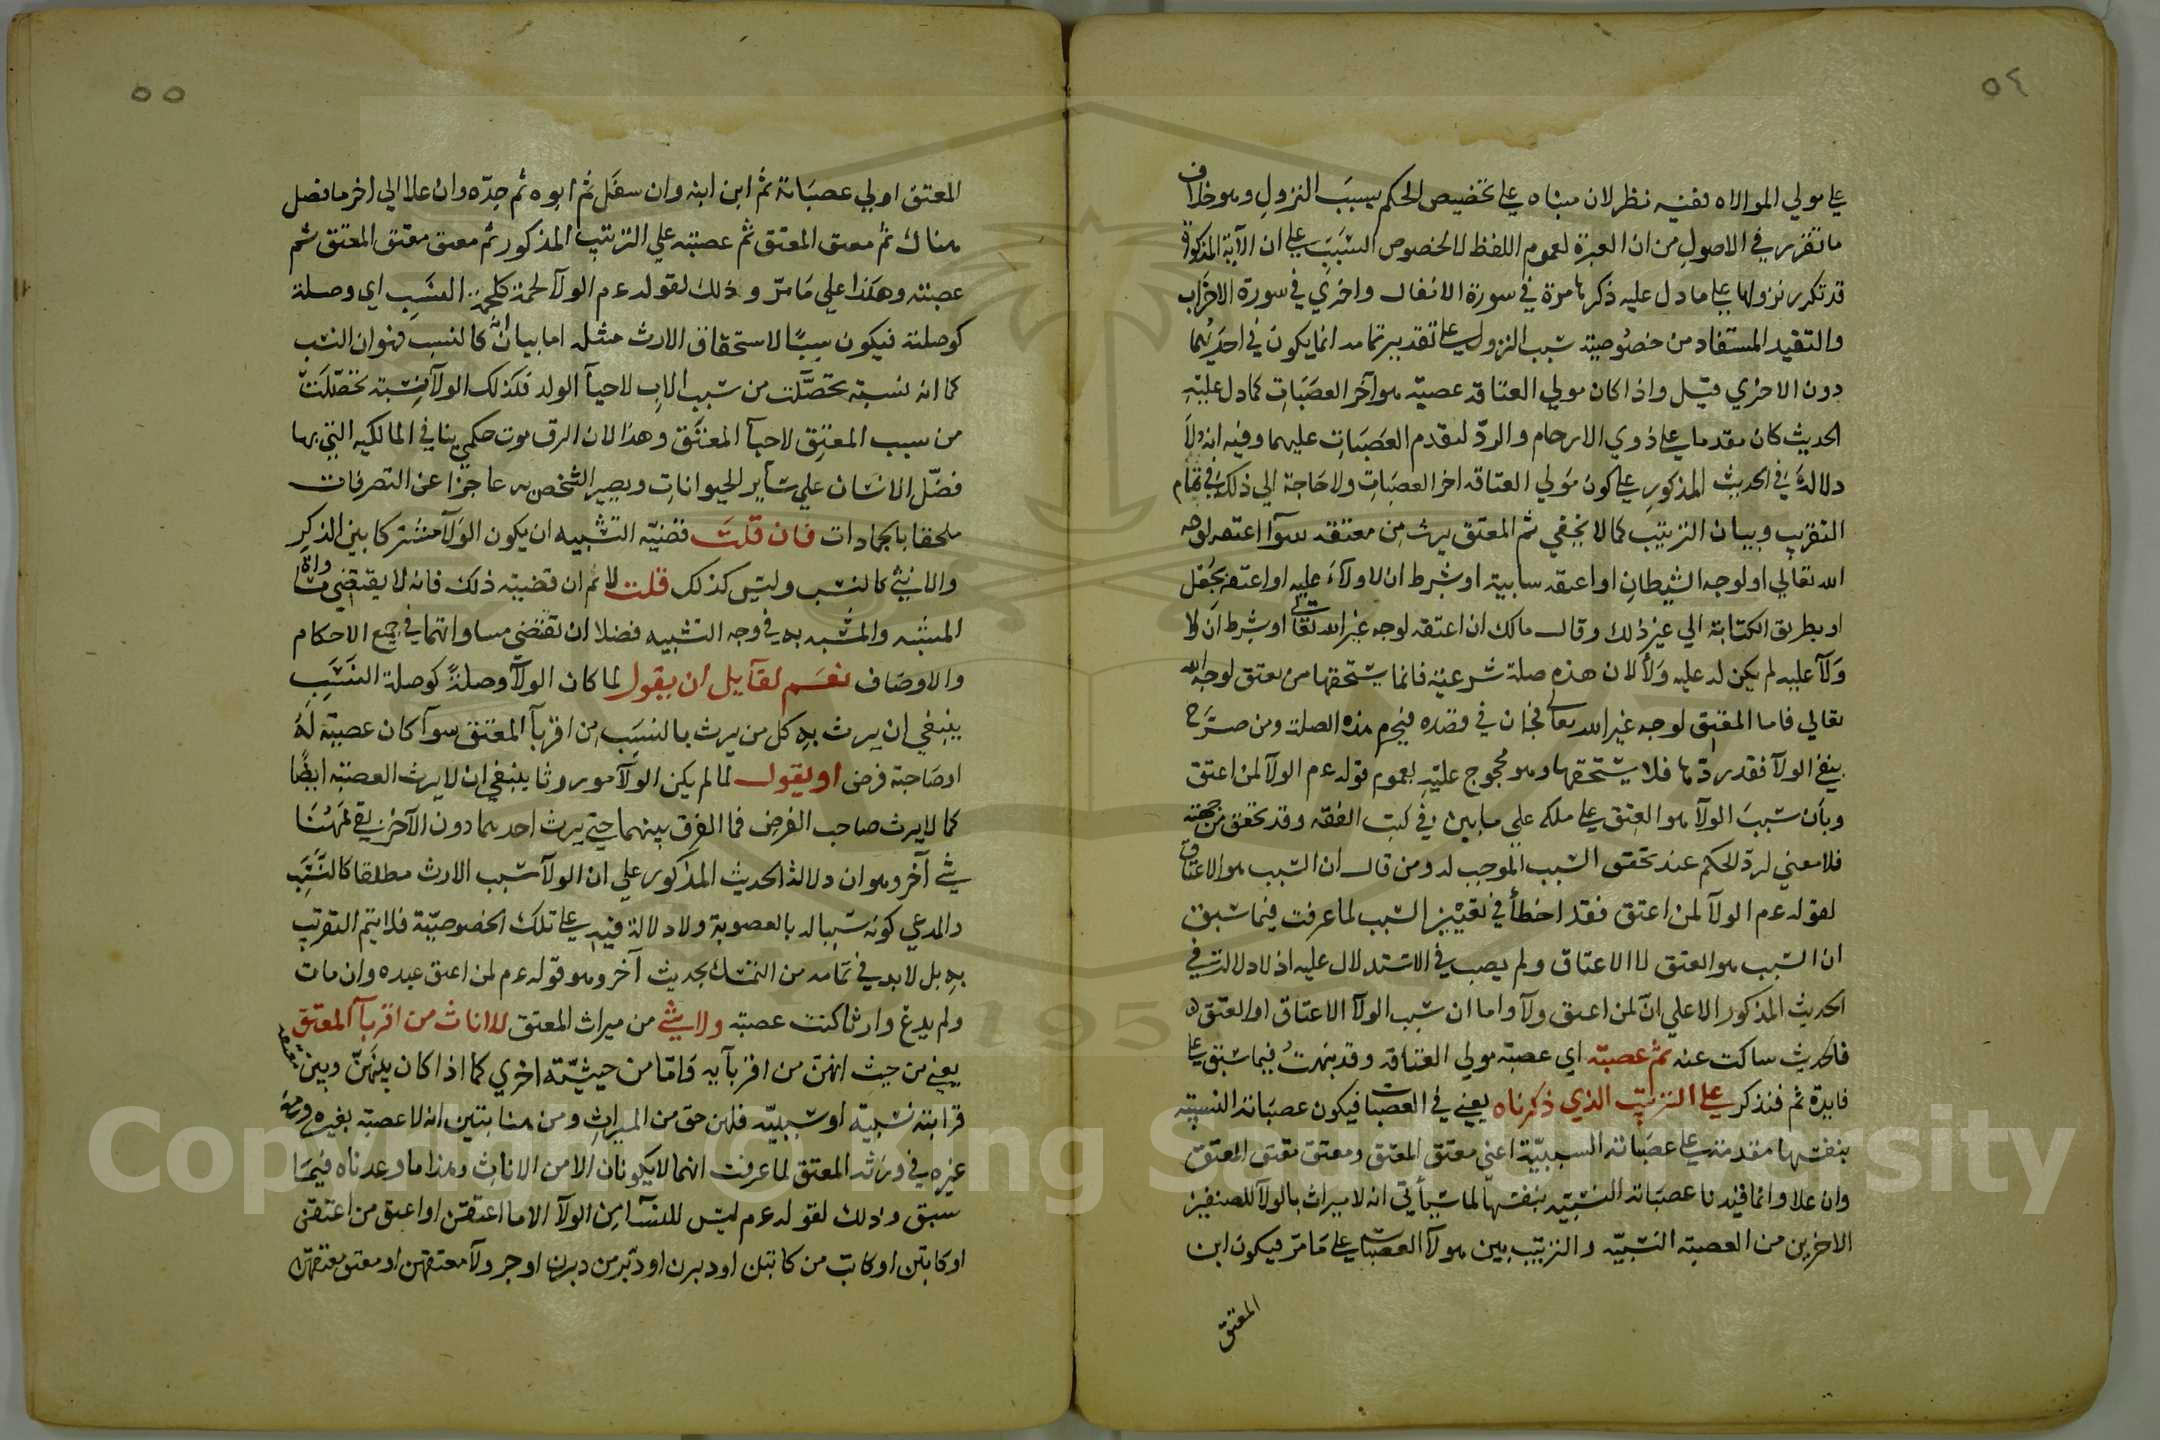 ٥٤
علي مولي الموالاه نفيه نظر لان مبناه علي تخصيص الحكم بسبب النزول وهو خلاف
ما تقرر في الاصول من ان العبرة لعموم اللفظ لا لخصوص السبب علي ان الآية المذكورة
قد تكرر نزولها علي ما دل عليه ذكرها مرة في سورة الانفال واخري في سورة الاحزاب
والتقيد المستفاد من خصوصية سبب النزول علي تقدير تمامه انما يكون في احديهما
دون الاخري قيل واذا كان مولي العتاقه عصبة هو آخر العصبات كما دل عليه
الحديث كان مقدما علي ذوي الارحام والرد لتقدم العصبات عليهما وفيه انه لا
دلالة في الحديث المذكور علي كون مولي العتاقه اخر العصبات ولا حاجة الي ذلك في تمام
التقريب وبيان الترتيب كما لا يخفي ثم المعتق يرث من معتقه سوآ اعتقه لوجه
الله تعالي او لوجه الشيطان او اعتقه سايبة او شرط ان لا ولآء عليه او اعتقه بجعل
او بطريق الكتابة الي غير ذلك وقال مالك ان اعتقه لوجه غير الله تعالي او شرط ان لا
ولآ عليه لم يكن له عليه ولآ لان هذه صلة شرعية فانما يستحقها من يعتق لوجه الله
تعالي فاما المعتق لوجه غير الله تعالي فجان في قصده فيحرم هذه الصلة ومن صرح
بنفي الولآ فقد ردها فلا يستحقها وهو محجوج عليه بعموم قوله عم الولآ لمن اعتق
وبان سبب الولآ هو العتق علي ملكه علي ما بين في كتب الفقه وقد تحقق من جهته
فلا معني لرد الحكم عند تحقق السبب الموجب له ومن قال ان السبب هو الاعتاق
لقوله عم الولآ لمن اعتق فقد اخطأ في تعيين السبب لما عرفت فيما سبق
ان السبب هو العتق لا الاعتاق ولم يصب في الاستدلال عليه اذ لا دلالة في
الحديث المذكور الا علي ان لمن اعتق ولآ واما ان سبب الولآ الاعتاق او العتق
فالحديث ساكت عنه ثم عصبته اي عصبة مولي العتاقه وقد نبهت فيما سبق علي
فايدة ثم فتذكر علي الترتيب الذي ذكرناه يعني في العصبات فيكون عصباته النسبيه
بنفسها مقدمة علي عصباته السببية اعني معتق المعتق ومعتق معتق المعتق
وان علا وانما قيدنا عصباته النسبيه بنفسها لما سيأتي انه لا ميراث بالولآ للصنفين
الاخرين من العصبة النسبيه والترتيب بين هولآ العصبات علي ما مر فيكون ابن
المعتق
٥٥
المعتق اولي عصباته ثم ابن ابنه وان سفل ثم ابوه ثم جده وان علا الي اخر ما فصل
هناك ثم معتق المعتق ثم عصبته علي الترتيب المذكور ثم معتق معتق المعتق ثم
عصبته وهكذا علي ما مر وذلك لقوله عم الولآ لحمة كلحمة النسب اي وصلة
كوصلته فيكون سببا لاستحقاق الارث مثله اما بيان انه كالنسب فهو ان النسب
كما انه نسبة تحصلت من سبب الاب لاحيآ الولد فكذلك الولآ نسبة تحصلت
من سبب المعتق لاحيآ المعتق وهذا لان الرق موت حكمي ينافي المالكيه التي بها
فضل الانسان علي سآير الحيوانات ويصير الشخص به عاجزا عن التصرفات
ملحقا بالجمادات فان قلت قضية التشبيه ان يكون الولآ مشتركا بين الذكر
والانثي كالنسب وليس كذلك قلت لا ثم ان قضيته ذلك فانه لا يقتضي مساواة
المشبه والمشبه به في وجه التشبيه فضلا ان تقتضي مساواتهما في جميع الاحكام
والاوصاف نعم لقآيل ان يقول لما كان الولآ وصلة كوصلة النسب
ينبغي ان يرث به كل من يرث بالنسب من اقربآ المعتق سوآ كان عصبة له
او صاحبة فرض او يقول لما لم يكن الولآ موروثا ينبغي ان لا يرث العصبة ايضا
كما لا يرث صاحب الفرض فما الفرق بينهما حتي يرث احديهما دون الآخر بقي ههنا
شئ آخر وهو ان دلالة الحديث المذكور علي ان الولآ سبب الارث مطلقا كالنسب
والمدعي كونه سببا له بالعصوبة ولا دلالة فيه علي تلك الخصوصية فلا يتم التقريب
به بل لا بد في تمامه من التمسك بحديث آخر وهو قوله عم لمن اعتق عبده وان مات
ولم يدع وارثا كنت عصبته ولا شئ من ميراث المعتق للاناث من اقربآ المعتق
يعني من حيث انهن من اقربآيه واما من حيثية اخري كما اذا كان بينهن وبين معتقه
قرابة نسبية او سببية فلهن حق من الميراث ومن هنا يتبين انه لا عصبة بغيره ومع
غيره في ورثة المعتق لما عرفت انهما لا يكونان الا من الاناث وهذا ما وعدناه فيما
سبق وذلك لقوله عم ليس للنسآ من الولآ الا ما اعتقن او اعتق من اعتقن
او كاتبن او كاتب من كاتبن او دبرن او دبر من دبرن او جر ولآ معتقهن او معتق معتقهن